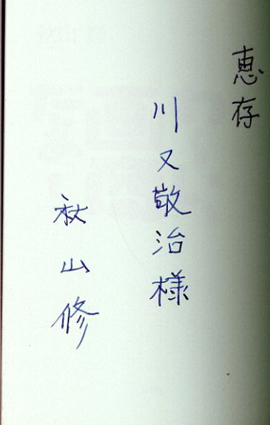 恵存
川又敬治様
秋山修